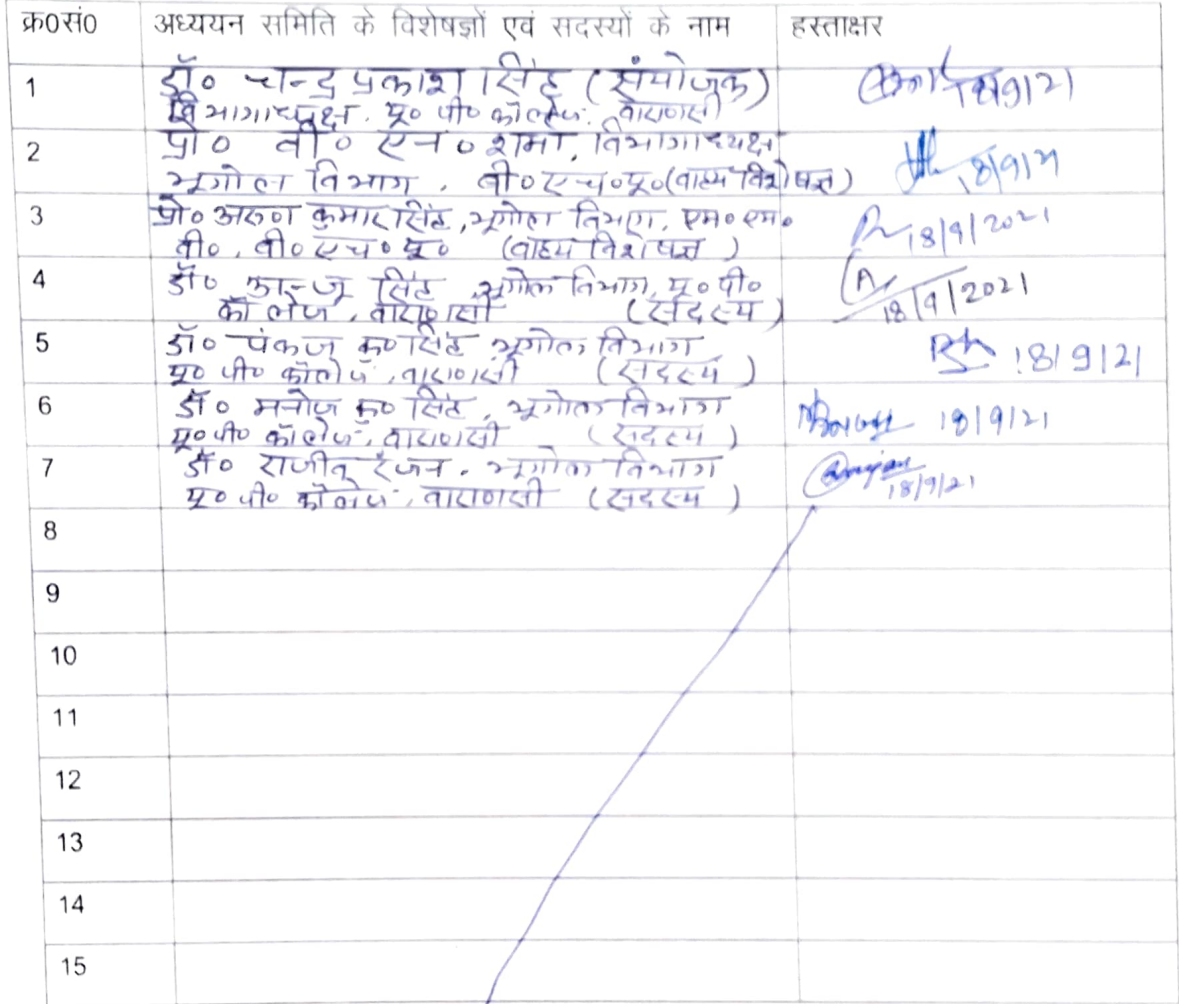 क्र०सं० अध्ययन समिति के विशेषज्ञों एवं सदस्यों के नाम हस्ताक्षर
1 डॉ० चन्द्र प्रकाश सिंह (संयोजक)
विभागाध्यक्ष, यू० पी० कॉलेज, वाराणसी 18/9/21
2 प्रो० वी० एन० शर्मा, विभागाध्यक्ष
भूगोल विभाग, बी०एच०यू० (वाह्य विशेषज्ञ) 18/9/21
3 प्रो० अरुण कुमार सिंह, भूगोल विभाग, एम० एम०
वी०, बी० एच० यू० (वाह्य विशेषज्ञ) 18/9/2021
4 डॉ० अन्जू सिंह, भूगोल विभाग, यू० पी०
कॉलेज, वाराणसी (सदस्य) 18/9/2021
5 डॉ० पंकज कु० सिंह भूगोल विभाग
यू० पी० कॉलेज, वाराणसी (सदस्य) 18/9/21
6 डॉ० मनोज कु० सिंह, भूगोल विभाग
यू० पी० कॉलेज, वाराणसी (सदस्य) 18/9/21
7 डॉ० राजीव रंजन, भूगोल विभाग
यू० पी० कॉलेज, वाराणसी (सदस्य) 18/9/21
8
9
10
11
12
13
14
15